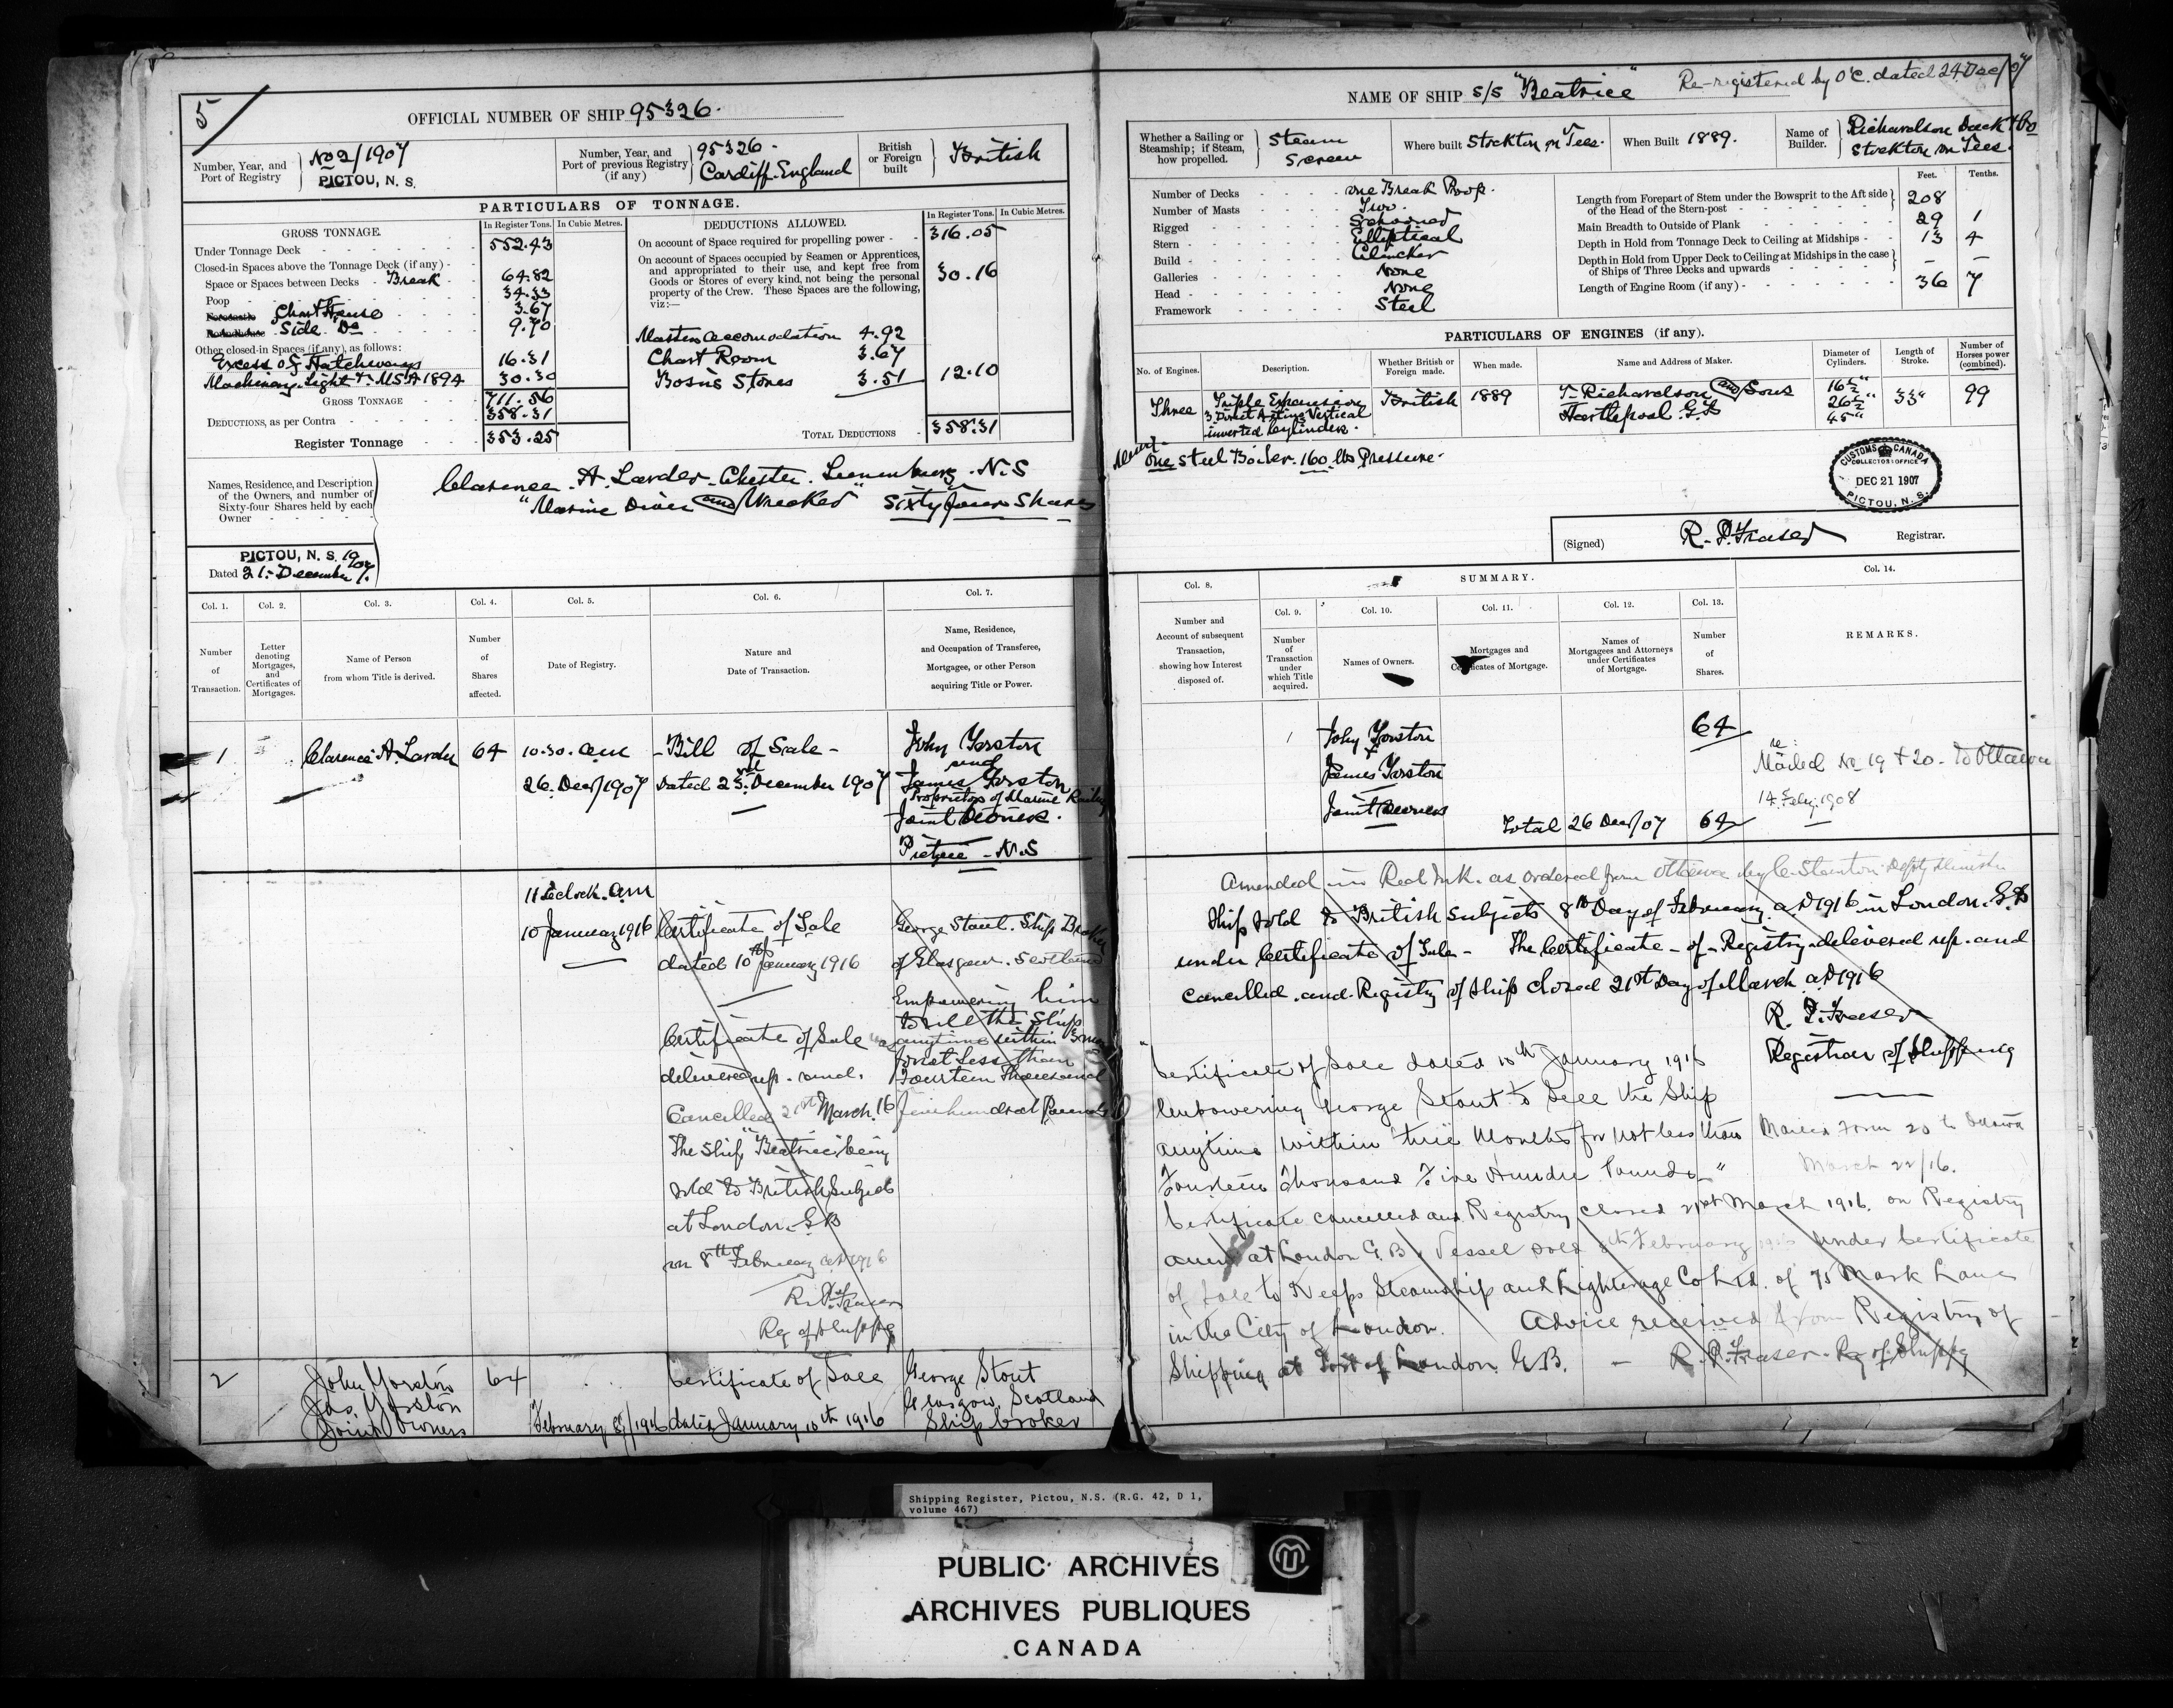 5
OFFICIAL NUMBER OF SHIP 95326.
Number, Year, and Port of Registry
No 2/1907
PICTOU, N. S.
Number, Year, and Port of previous Registry (if any)
95326.
Cardiff. England
British or Foreign built
British
PARTICULARS OF TONNAGE.
GROSS TONNAGE.
In Register Tons.
In Cubic Metres.
Under Tonnage Deck 552.43
Closed-in Spaces above the Tonnage Deck (if any)
Space or Spaces between Decks - Break 64.82
Poop 34.33
Forecastle Chart House 3.67
Roundhouse Side Do 9.70
Other closed-in Spaces (if any), as follows:
Excess of Hatchways 16.31
Machinery. Light &. MSA 1894 30.30
GROSS TONNAGE 711.56
DEDUCTIONS, as per Contra 358.31
Register Tonnage 353.25
DEDUCTIONS ALLOWED.
In Register Tons.
In Cubic Metres.
On account of Space required for propelling power 316.05
On account of Spaces occupied by Seamen or Apprentices,
and appropriated to their use, and kept free from
Goods or Stores of every kind, not being the personal
property of the Crew. These Spaces are the following,
viz:—
30.16
Masters accomodation 4.92
Chart Room 3.67
Bosns Stores 3.51
12.10
TOTAL DEDUCTIONS 358.31
Names, Residence, and Description
of the Owners, and number of
Sixty-four Shares held by each
Owner
Clarence. A. Larder. Chester. Lunenburg. N.S
"Marine Diver and Wrecker" Sixty four Shares
PICTOU, N. S. 1907
Dated 21. December
Col. 1.
Col. 2.
Col. 3.
Col. 4.
Col. 5.
Col. 6.
Col. 7.
Number of Transaction.
Letter denoting Mortgages, and Certificates of Mortgages.
Name of Person from whom Title is derived.
Number of Shares affected.
Date of Registry.
Nature and Date of Transaction.
Name, Residence, and Occupation of Transferee, Mortgagee, or other Person acquiring Title or Power.
1
Clarence A. Larder
64
10.30. am
26. Dec/1907
- Bill of Sale -
Dated 23rd December 1907
John Yorston
and
James Yorston
Proprietors of Marine
Joint Owners.
Pictou - N.S
11 Oclock. am
10 January 1916
Certificate of Sale
dated 10th January 1916
Certificate of Sale
delivered up. and.
Cancelled 21st March. 16
The Ship "Beatrice" being
sold to British Subjects
at London. G.B
on 8th February AD 1916
R. P. Fraser
Reg of Shipping
George Stout. Ship Broker
of Glasgow. Scotland
Empowering him
to sell the Ship
anytime within
for not less than
Fourteen Thousand
five hundred Pounds
2
John Yorston
Jas. Yorston
Joint Owners
64
February 8/1916
Certificate of Sale
dated January 10th 1916
George Stout
Glasgow, Scotland
Ship broker
NAME OF SHIP S/S "Beatrice"
Re-registered by O'C. dated 24 Dec/07
Whether a Sailing or Steamship; if Steam, how propelled.
Steam
Screw
Where built Stockton on Tees.
When Built 1889.
Name of Builder.
Richardson Duck & Co
Stockton on Tees.
Number of Decks one Break Poop.
Number of Masts Two.
Rigged Schooner
Stern Elliptical
Build Clincher
Galleries None
Head None
Framework Steel
Feet.
Tenths.
Length from Forepart of Stem under the Bowsprit to the Aft side
of the Head of the Stern-post 208
Main Breadth to Outside of Plank 29 1
Depth in Hold from Tonnage Deck to Ceiling at Midships 13 4
Depth in Hold from Upper Deck to Ceiling at Midships in the case
of Ships of Three Decks and upwards – –
Length of Engine Room (if any) 36 7
PARTICULARS OF ENGINES (if any).
No. of Engines.
Description.
Whether British or Foreign made.
When made.
Name and Address of Maker.
Diameter of Cylinders.
Length of Stroke.
Number of Horses power (combined).
Three
Triple Expansion
3 Direct Acting Vertical
inverted Cylinders.
British
1889
T. Richardson and Sons
Hartlepool. G.B
16½"
26½"
45"
33"
99
One Steel Boiler. 160 lbs Pressure.
CUSTOMS CANADA
COLLECTORS OFFICE
DEC 21 1907
PICTOU, N. S.
(Signed) R. P. Fraser Registrar.
SUMMARY.
Col. 8.
Col. 9.
Col. 10.
Col. 11.
Col. 12.
Col. 13.
Col. 14.
Number and Account of subsequent Transaction, showing how Interest disposed of.
Number of Transaction under which Title acquired.
Names of Owners.
Mortgages and Certificates of Mortgage.
Names of Mortgagees and Attorneys under Certificates of Mortgage.
Number of Shares.
REMARKS.
1
John Yorston
+
James Yorston
Joint Owners
64
Total 26 Dec/07 64
Mailed No 19 + 20 - to Ottawa
14 Feby. 1908
Amended in Red Ink. as ordered from Ottawa by C. Stanton Depty Minister
Ship sold to British Subjects 8th Day of February AD 1916 in London. G.B
under Certificate of Sale - The Certificate - of - Registry delivered up. and
Cancelled. and. Registry of Ship closed 21st Day of March AD 1916
R. P. Fraser
Registrar of Shipping
"Certificate of Sale dated 10th January 1916
Empowering George Stout to Sell the Ship
anytime within three Months for not less than
Fourteen Thousand Five Hundred Pounds"
Mailed Form 20 to Ottawa
March 22/16.
Certificate cancelled and Registry closed 21st March 1916. on Registry
anew at London G.B. Vessel sold 8th February 1916 under Certificate
of Sale to Steamship and Lighterage Co Ltd. of 75 Mark Lane
in the City of London. Advice received from Registry of
Shipping at Port of London G.B. - R. P. Fraser. Rg of Shippg
Shipping Register, Pictou, N.S. (R.G. 42, D 1,
volume 467)
PUBLIC ARCHIVES
ARCHIVES PUBLIQUES
CANADA